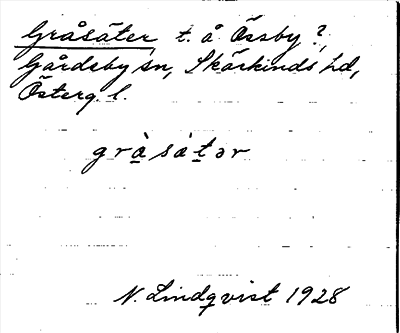 Gråsäter t. å Össby?,
Gårdeby sn, Skärkinds hd,
Österg. l.
gråsätər
N. Lindqvist 1928